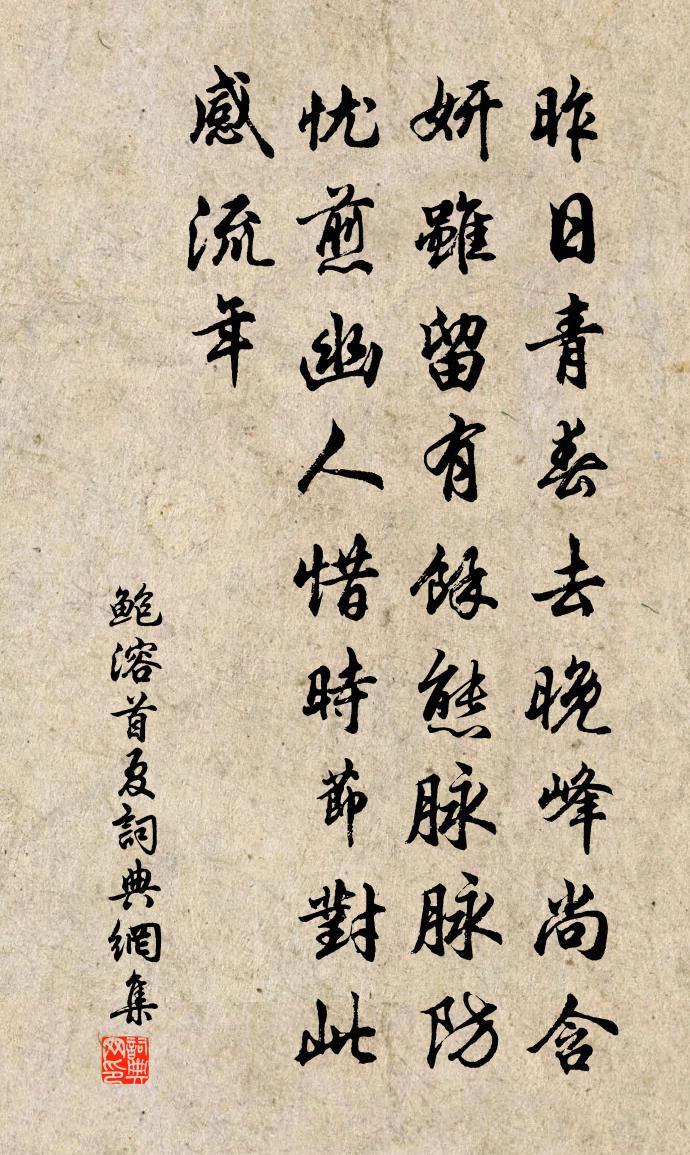 昨日青春去晚峰尚含
妍雖留有餘態脉脉防
忧煎幽人惜時節對此
感流年
鮑溶首夏詞典網集
詞典网印